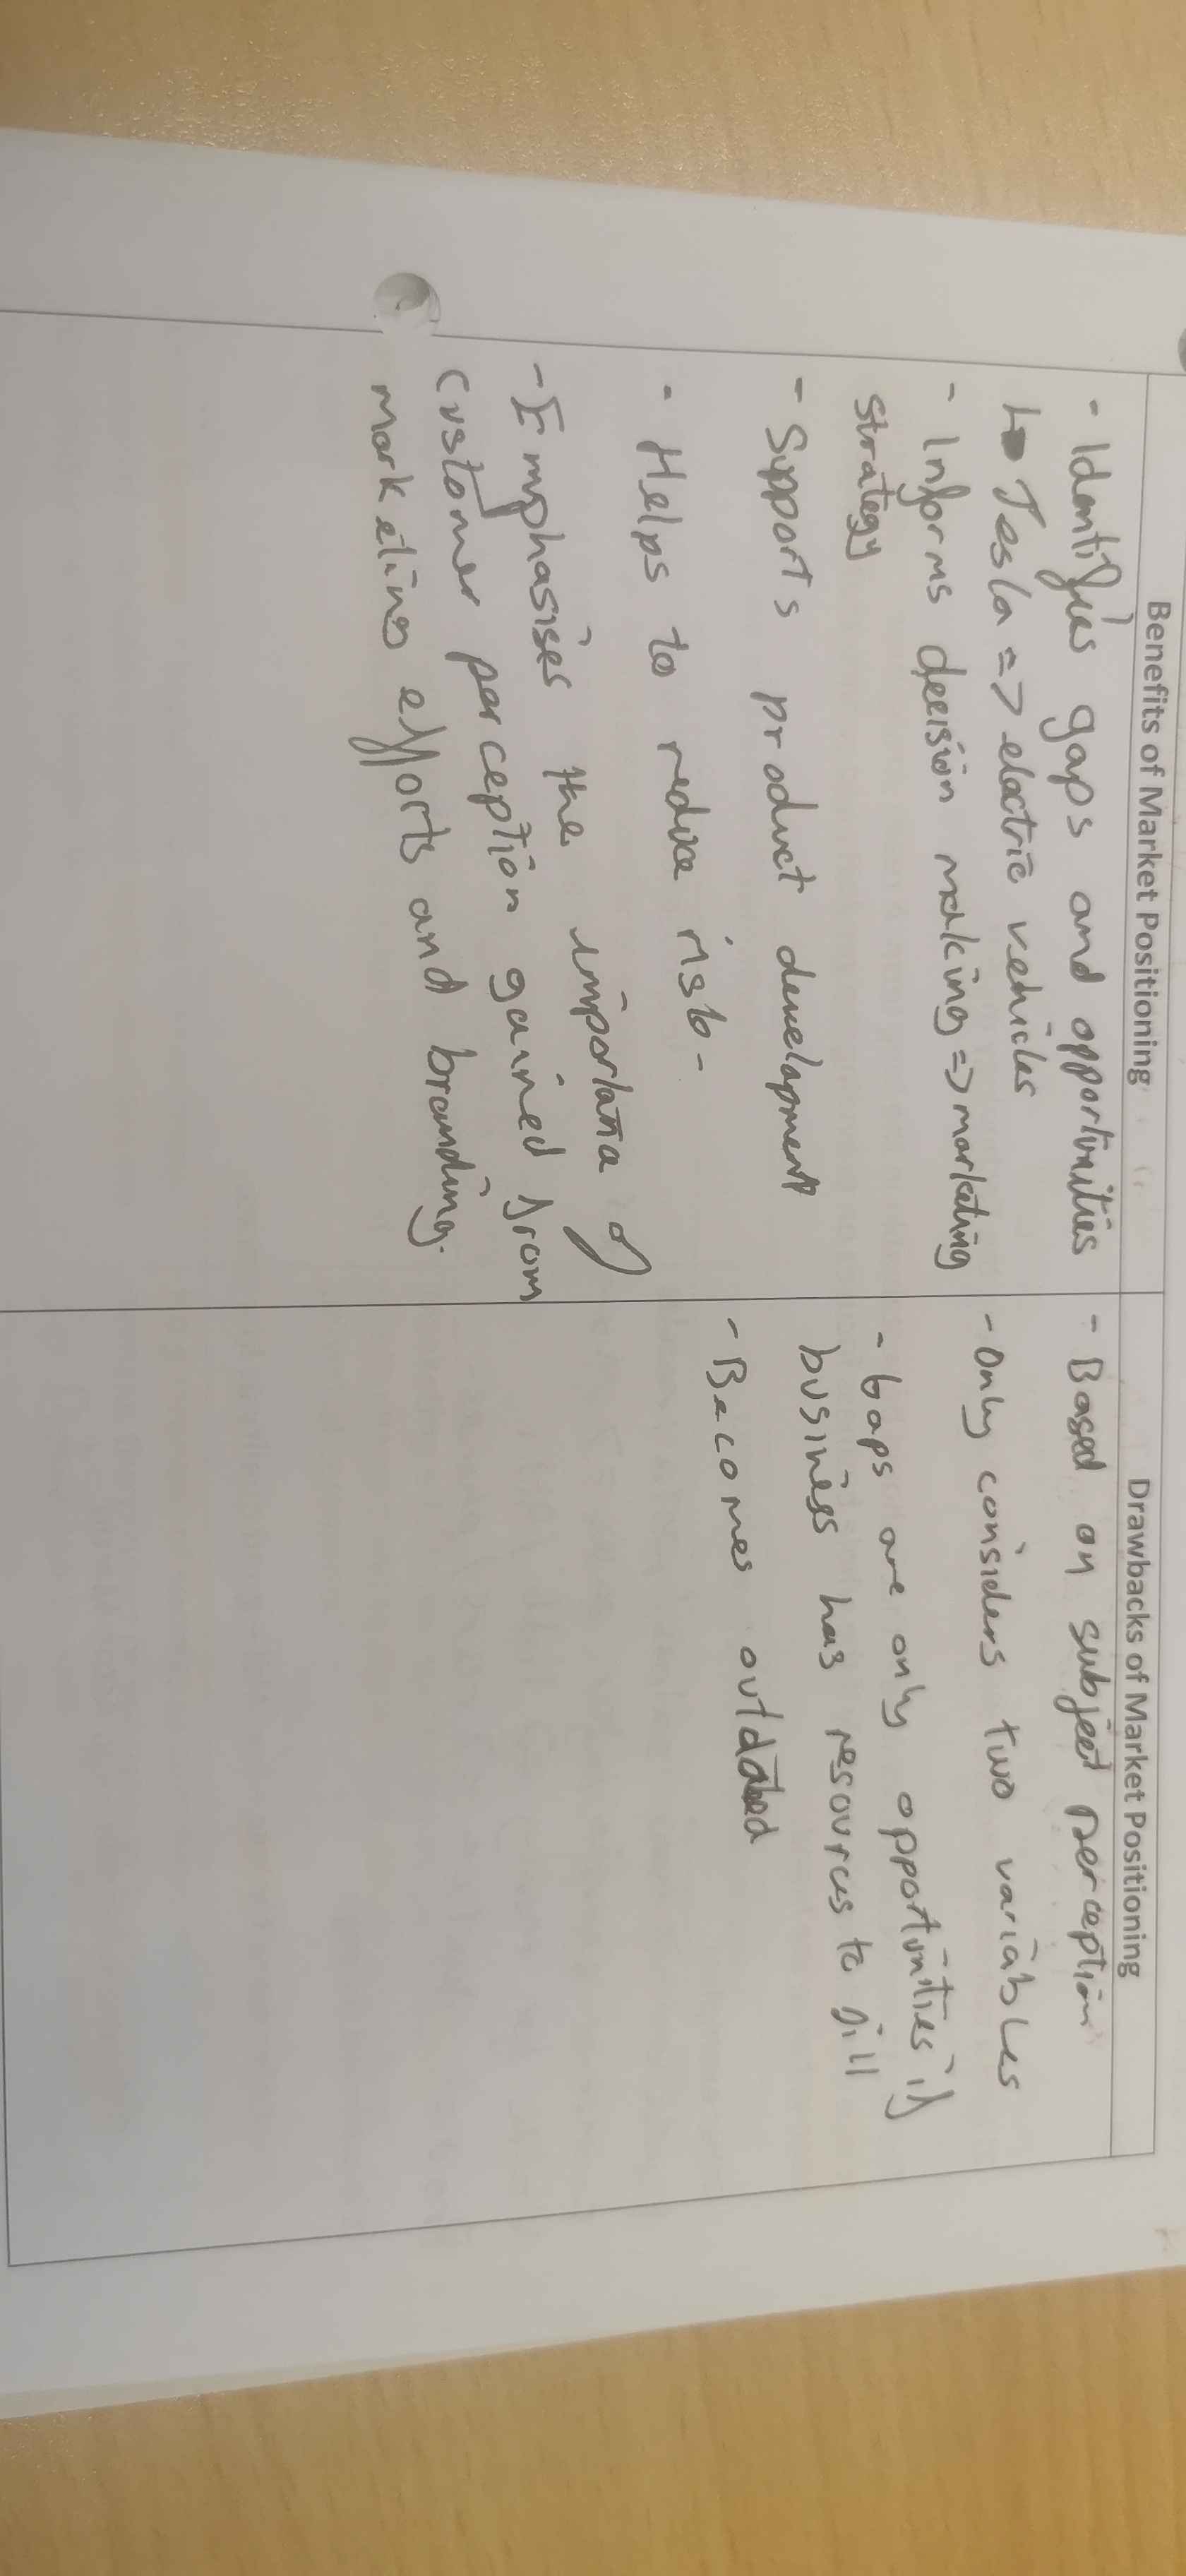 Benefits of Market Positioning
- Identifies gaps and opportunities
↳ Tesla => electric vehicles
- Informs decision making => marketing
strategy
- Supports product development
- Helps to reduce risk -
- Emphasises the importance of
customer perception gained from
marketing efforts and branding.
Drawbacks of Market Positioning
- Based on subject perception
- Only considers two variables
- Gaps are only opportunities if
business has resources to fill
- Becomes outdated